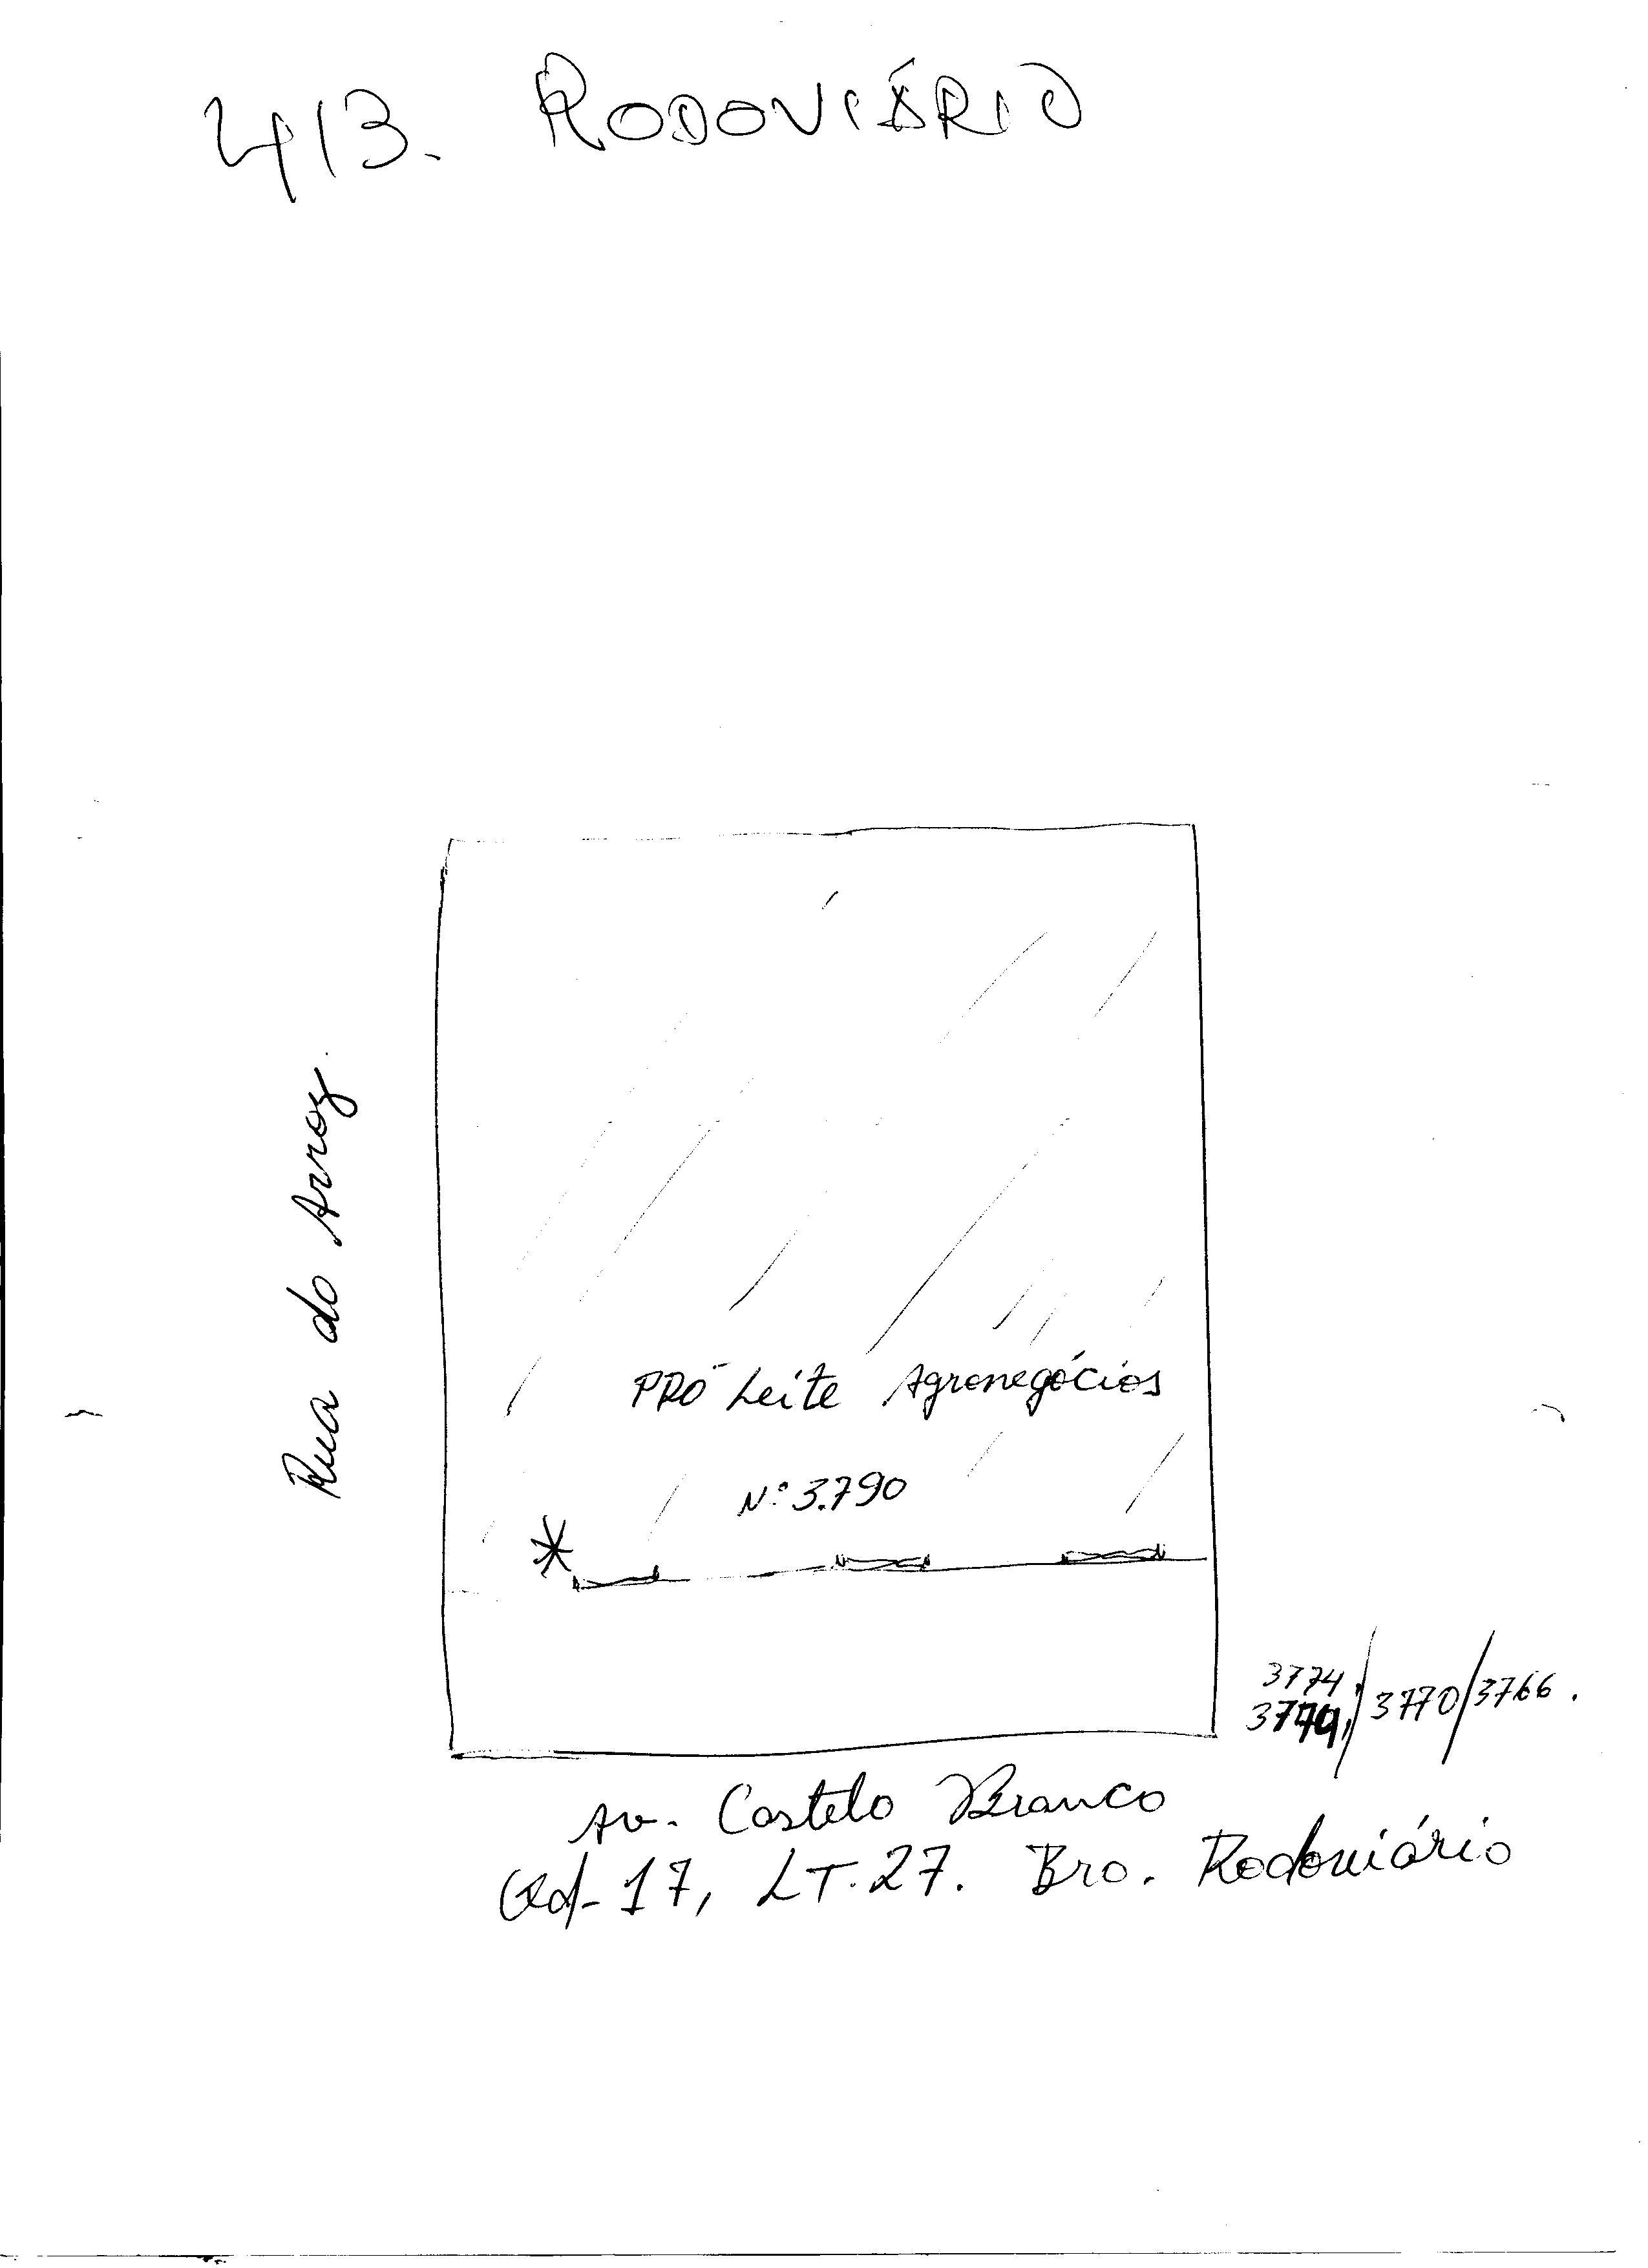 413. RODOVIÁRIO
Rua do Arroz.
PRÓ Leite Agronegócios
Nº 3.790
3774.
3770/3766.
Av. Castelo Branco
Qd-17, LT.27. Bro. Rodoviário